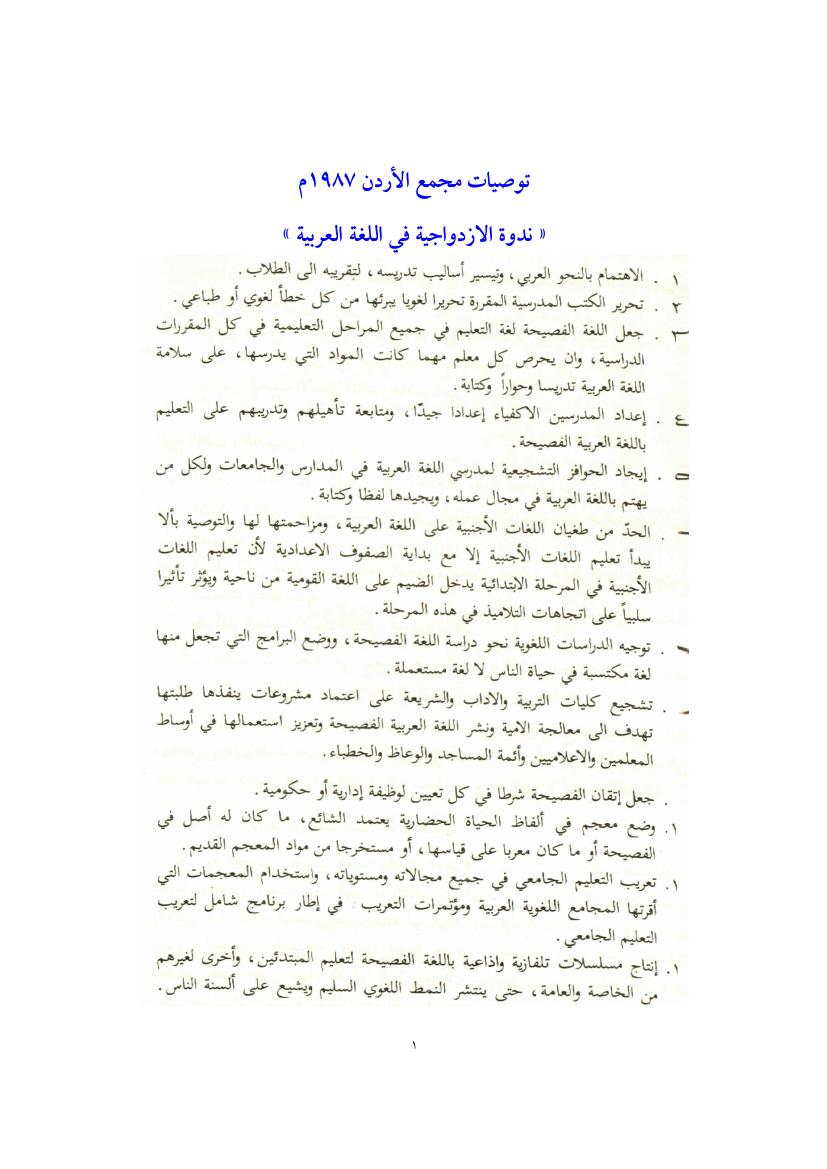 توصيات مجمع الأردن ١٩٨٧م
« ندوة الازدواجية في اللغة العربية »
١ . الاهتمام بالنحو العربي، وتيسير أساليب تدريسه، لتقريبه الى الطلاب .
٢ . تحرير الكتب المدرسية المقررة تحريرا لغويا يبرئها من كل خطأ لغوي أو طباعي .
٣ . جعل اللغة الفصيحة لغة التعليم في جميع المراحل التعليمية في كل المقررات
الدراسية، وان يحرص كل معلم مهما كانت المواد التي يدرسها، على سلامة
اللغة العربية تدريسا وحواراً وكتابة .
٤ . إعداد المدرسين الاكفياء إعدادا جيدّا، ومتابعة تأهيلهم وتدريبهم على التعليم
باللغة العربية الفصيحة .
. إيجاد الحوافز التشجيعية لمدرسي اللغة العربية في المدارس والجامعات ولكل من
يهتم باللغة العربية في مجال عمله، ويجيدها لفظا وكتابة .
. الحدّ من طغيان اللغات الأجنبية على اللغة العربية، ومزاحمتها لها والتوصية بألا
يبدأ تعليم اللغات الأجنبية إلا مع بداية الصفوف الاعدادية لأن تعليم اللغات
الأجنبية في المرحلة الابتدائية يدخل الضيم على اللغة القومية من ناحية ويؤثر تأثيرا
سلبياً على اتجاهات التلاميذ في هذه المرحلة .
. توجيه الدراسات اللغوية نحو دراسة اللغة الفصيحة، ووضع البرامج التي تجعل منها
لغة مكتسبة في حياة الناس لا لغة مستعملة .
. تشجيع كليات التربية والاداب والشريعة على اعتماد مشروعات ينفذها طلبتها
تهدف الى معالجة الامية ونشر اللغة العربية الفصيحة وتعزيز استعمالها في أوساط
المعلمين والاعلاميين وأئمة المساجد والوعاظ والخطباء .
. جعل إتقان الفصيحة شرطا في كل تعيين لوظيفة إدارية أو حكومية .
١. وضع معجم في ألفاظ الحياة الحضارية يعتمد الشائع، ما كان له أصل في
الفصيحة أو ما كان معربا على قياسها، أو مستخرجا من مواد المعجم القديم .
١. تعريب التعليم الجامعي في جميع مجالاته ومستوياته، واستخدام المعجمات التي
أقرتها المجامع اللغوية العربية ومؤتمرات التعريب في إطار برنامج شامل لتعريب
التعليم الجامعي .
١. إنتاج مسلسلات تلفازية واذاعية باللغة الفصيحة لتعليم المبتدئين، وأخرى لغيرهم
من الخاصة والعامة، حتى ينتشر النمط اللغوي السليم ويشيع على ألسنة الناس .
١